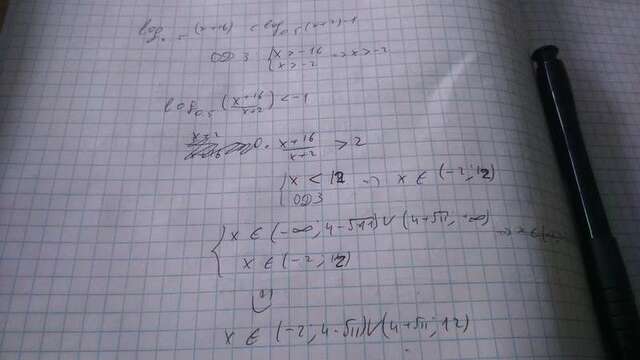 log₀.₅(x+16) < log₀.₅(x+2)-1
ОДЗ {x>-16 x>-2 → x>-2
log₀,₅(x+16/x+2) < -1
x+16/x+2 > 2
{x < 12 ОДЗ → x ∈ (-2; 12)
{x ∈ (-∞; 4-√11) ∪ (4+√11; +∞)
x ∈ (-2; 12)
x ∈ (-2; 4-√11) ∪ (4+√11; 12)